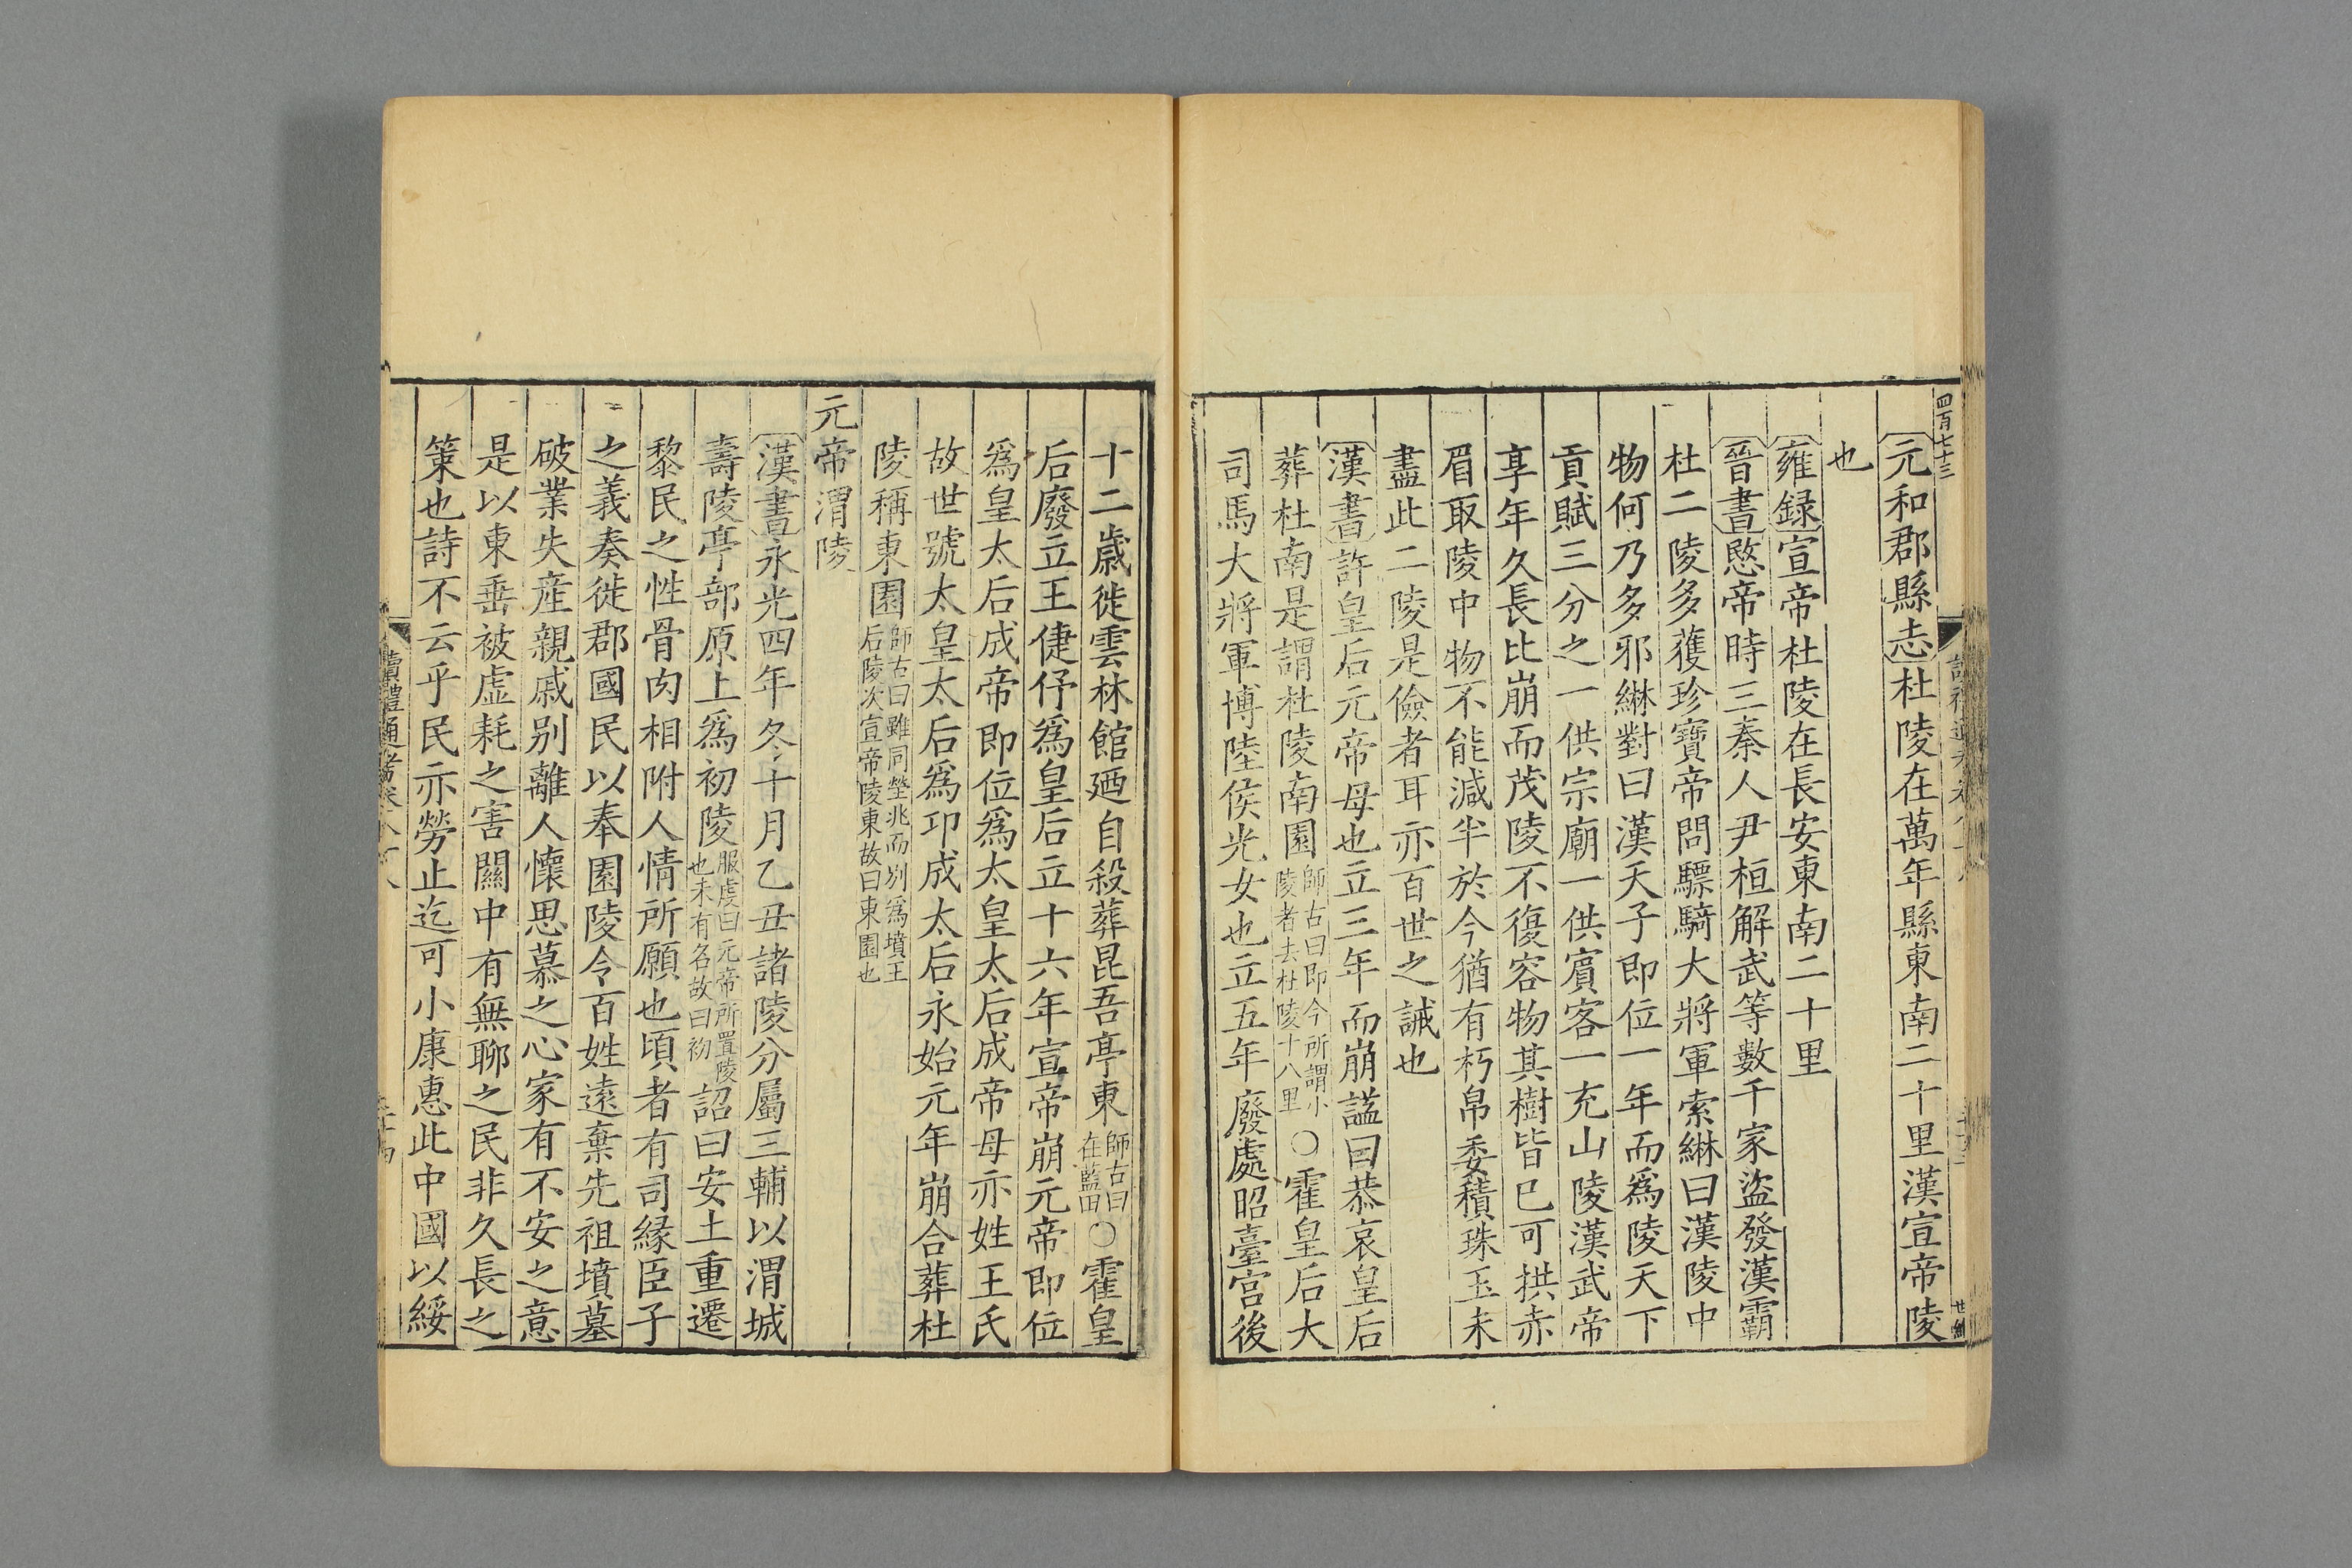 四百七十三
元和郡縣志杜陵在萬年縣東南二十里漢宣帝陵
也
雍録宣帝杜陵在長安東南二十里
晉書愍帝時三秦人尹桓解武等數千家盜發漢霸
杜二陵多獲珍寶帝問驃騎大將軍索綝曰漢陵中
物何乃多邪綝對曰漢天子即位一年而爲陵天下
貢賦三分之一供宗廟一供賓客一充山陵漢武帝
享年久長比崩而茂陵不復容物其樹皆已可拱赤
眉取陵中物不能減半於今猶有朽帛委積珠玉未
盡此二陵是儉者耳亦百世之誡也
漢書許皇后元帝母也立三年而崩謚曰恭哀皇后
葬杜南是謂杜陵南園師古曰即今所謂小陵者去杜陵十八里〇霍皇后大
司馬大將軍博陸侯光女也立五年廢處昭臺宫後
十二歲徙雲林館廼自殺葬昆吾亭東師古曰在藍田〇霍皇
后廢立王倢伃爲皇后立十六年宣帝崩元帝即位
爲皇太后成帝即位爲太皇太后成帝母亦姓王氏
故世號太皇太后爲卭成太后永始元年崩合葬杜
陵稱東園師古曰雖同塋兆而別爲墳王后陵次宣帝陵東故曰東園也
元帝渭陵
漢書永光四年冬十月乙丑諸陵分屬三輔以渭城
壽陵亭部原上爲初陵服虔曰元帝所置陵也未有名故曰初詔曰安土重遷
黎民之性骨肉相附人情所願也頃者有司縁臣子
之義奏徙郡國民以奉園陵令百姓遠棄先祖墳墓
破業失産親戚别離人懷思慕之心家有不安之意
是以東垂被虛耗之害關中有無聊之民非久長之
策也詩不云乎民亦勞止迄可小康惠此中國以綏
讀禮通考